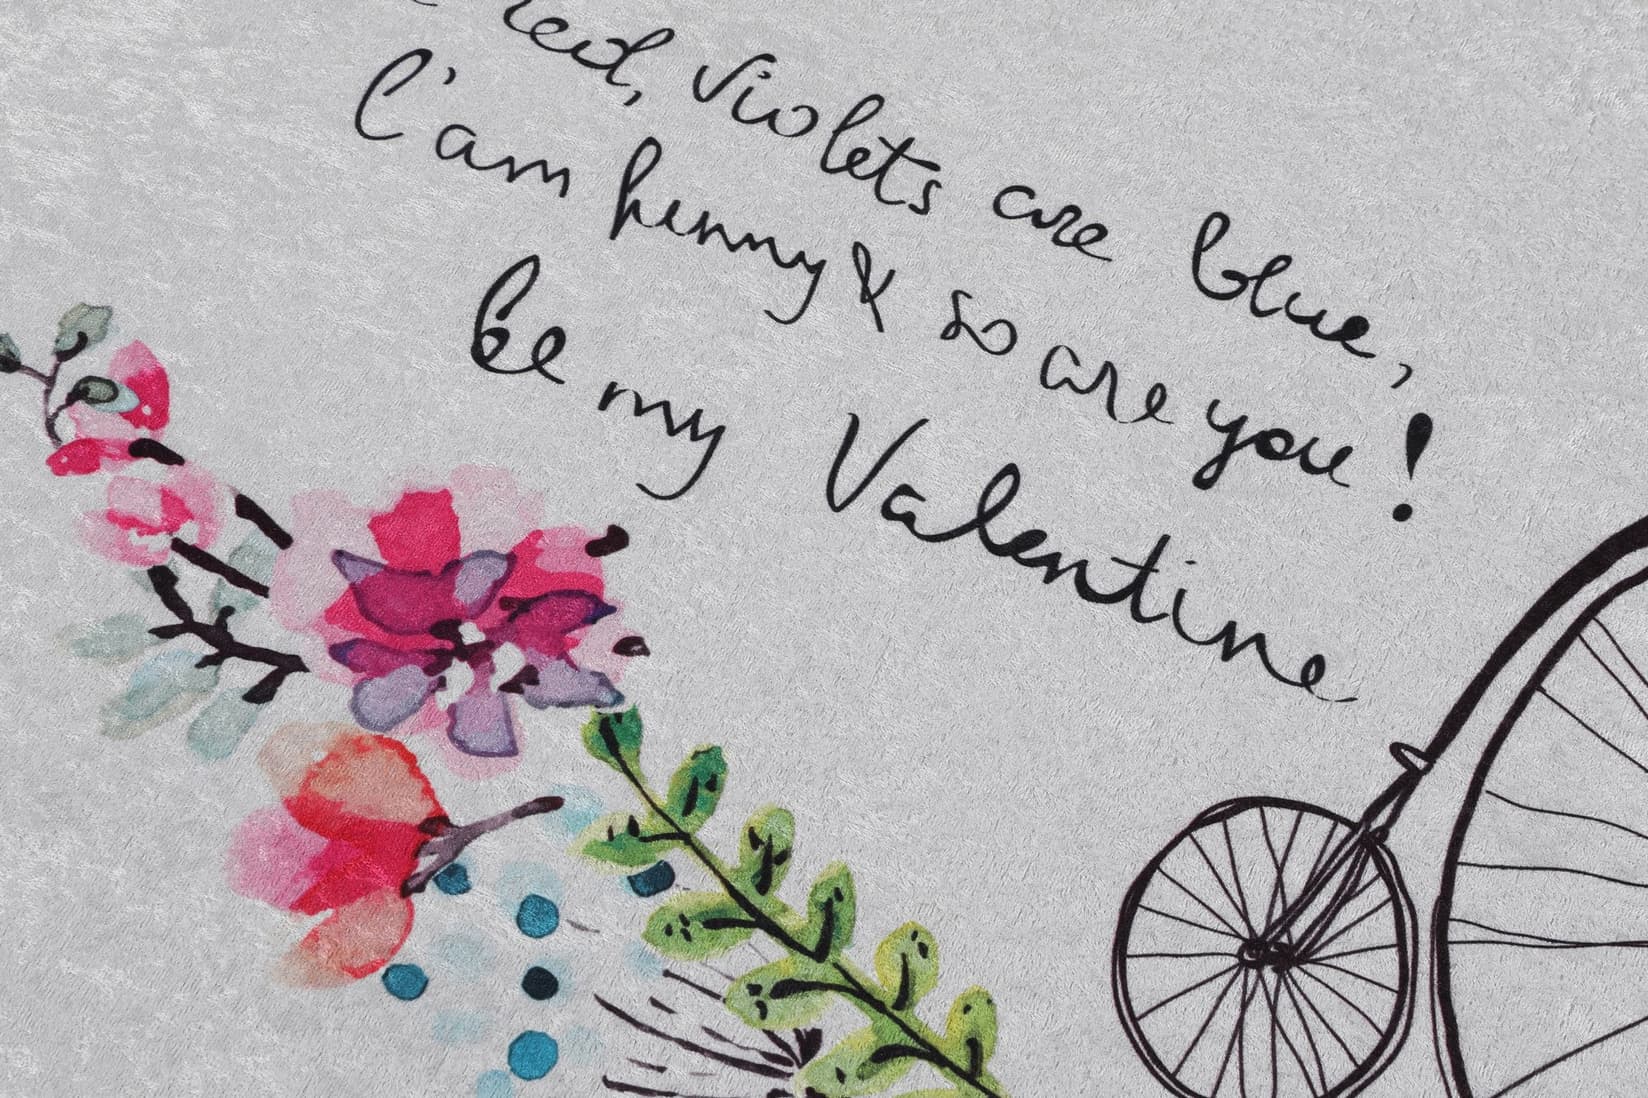 red, violets are blue,
I'am hunny & so are you!
be my Valentine